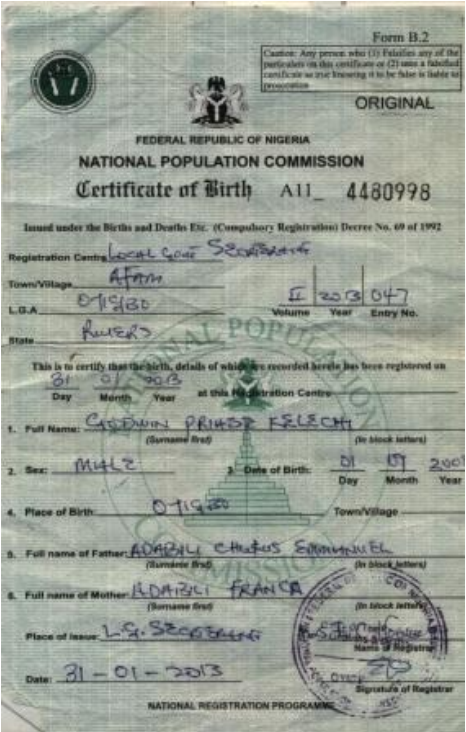 Form B.2
Caution: Any person who (1) Falsifies any of the
particulars on this certificate or (2) uses a falsified
certificate as true knowing it to be false is liable to
prosecution
ORIGINAL
FEDERAL REPUBLIC OF NIGERIA
NATIONAL POPULATION COMMISSION
Certificate of Birth A11_ 4480998
Issued under the Births and Deaths Etc. (Compulsory Registration) Decree No. 69 of 1992
Registration Centre LOCAL GOVT
Town/Village AFAM
L.G.A II 2013 047
Volume Year Entry No.
State RIVERS
This is to certify that the birth, details of which are recorded herein has been registered on
31 01 2013 at this Registration Centre
Day Month Year
1. Full Name: GODWIN KELECHI
(Surname first) (In block letters)
2. Sex: MALE 3. Date of Birth: 01
Day Month Year
4. Place of Birth: Town/Village
5. Full name of Father: EMMANUEL
(Surname first) (In block letters)
6. Full name of Mother: FRANCA
(Surname first) (In block letters)
Place of Issue: L.G.
Name of Registrar
Date: 31-01-2013
Signature of Registrar
NATIONAL REGISTRATION PROGRAMME
NATIONAL POPULATION COMMISSION